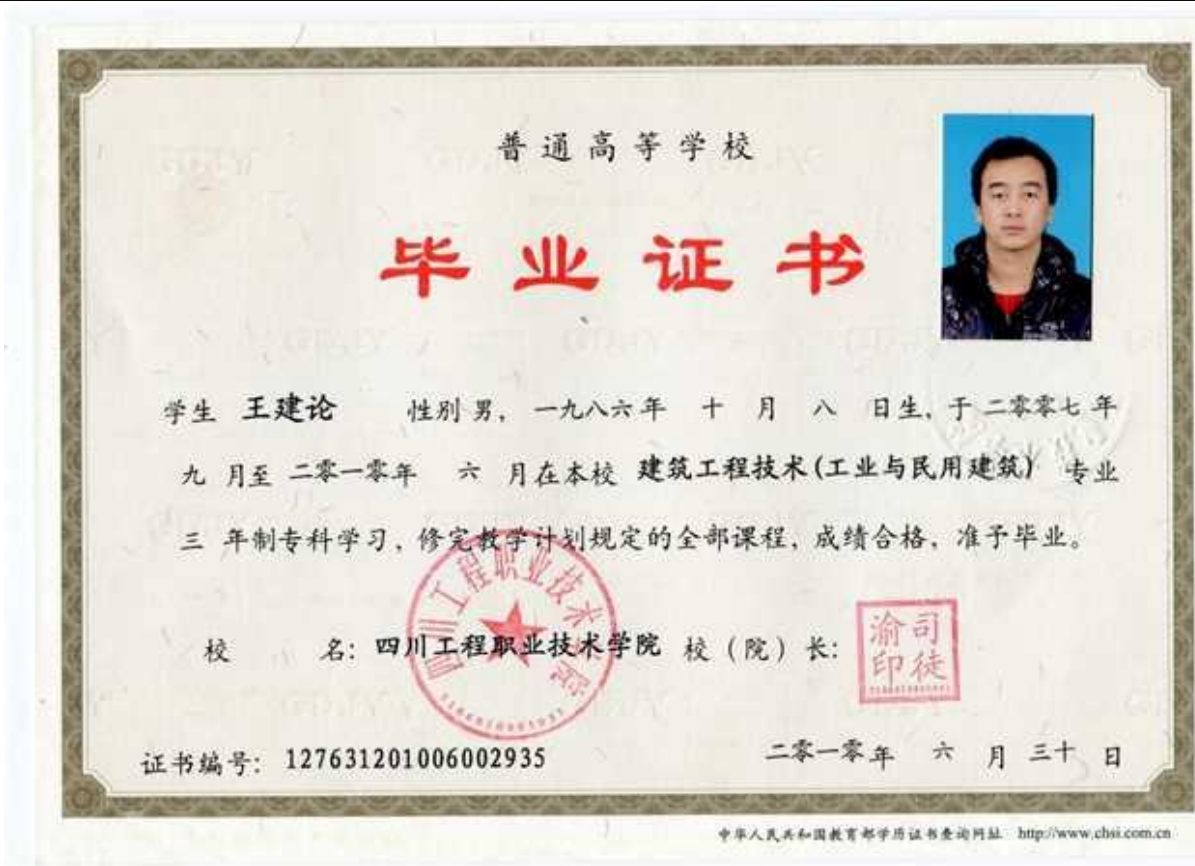 普通高等学校
毕业证书
学生 王建论 性别 男，一九八六年 十 月 八 日生，于二零零七年
九 月至 二零一零年 六 月在本校 建筑工程技术(工业与民用建筑) 专业
三 年制专科学习，修完教学计划规定的全部课程，成绩合格，准予毕业。
四川工程职业技术学院
校 名：四川工程职业技术学院 校（院）长：
司徒渝印
证书编号： 127631201006002935 二零一零年 六 月 三十 日
中华人民共和国教育部学历证书查询网址 http://www.chsi.com.cn